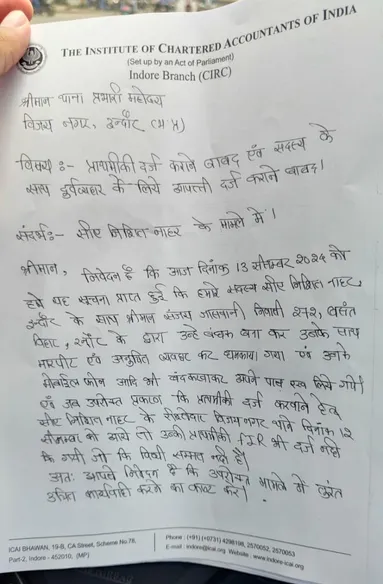 THE INSTITUTE OF CHARTERED ACCOUNTANTS OF INDIA
(Set up by an Act of Parliament)
Indore Branch (CIRC)
श्रीमान थाना प्रभारी महोदय
विजय नगर, इन्दौर (म.प्र)
विषय :- प्राथमीकी दर्ज कराने बावद एवं सदस्य के
साथ दुर्व्यवहार के लिये आपत्ती दर्ज कराने बावद।
संदर्भ:- सीए निखिल नाहर के मामले में।
श्रीमान, निवेदन है कि आज दिनांक 13 सीतम्बर 2024 को
हमे यह सूचना प्राप्त हुई कि हमारे सदस्य सीए निखिल नाहर,
इन्दौर के साथ श्रीमान संजय निवासी 272, बसंत
विहार, इन्दौर के द्वारा उन्हे बंधक बना कर उनके साथ
मारपीट एवं अनुचित व्यवहार कर धमकाया गया एवं उनके
मोबाईल फोन आदि भी बंद करवाकर अपने पास रख लिये गये।
एवं जब उपरोक्त प्रकरण कि प्राथमीकी दर्ज करवाने हेतु
सीए निखिल नाहर के रिश्तेदार विजयनगर थाने दिनांक 12
सीतम्बर को आये तो उनकी प्राथमीकी F.I.R भी दर्ज नही
कि गयी जो कि विधी सम्मत नही है।
अतः आपसे निवेदन है कि उपरोक्त मामले में तुरंत
उचित कार्यवाही करने का कष्ट करें।
ICAI BHAWAN, 19-B, CA Street, Scheme No.78,
Part-2, Indore - 452010, (MP)
Phone : (+91) (+0731) 4298198, 2570052, 2570053
E-mail : indore@icai.org Website : www.indore-icai.org